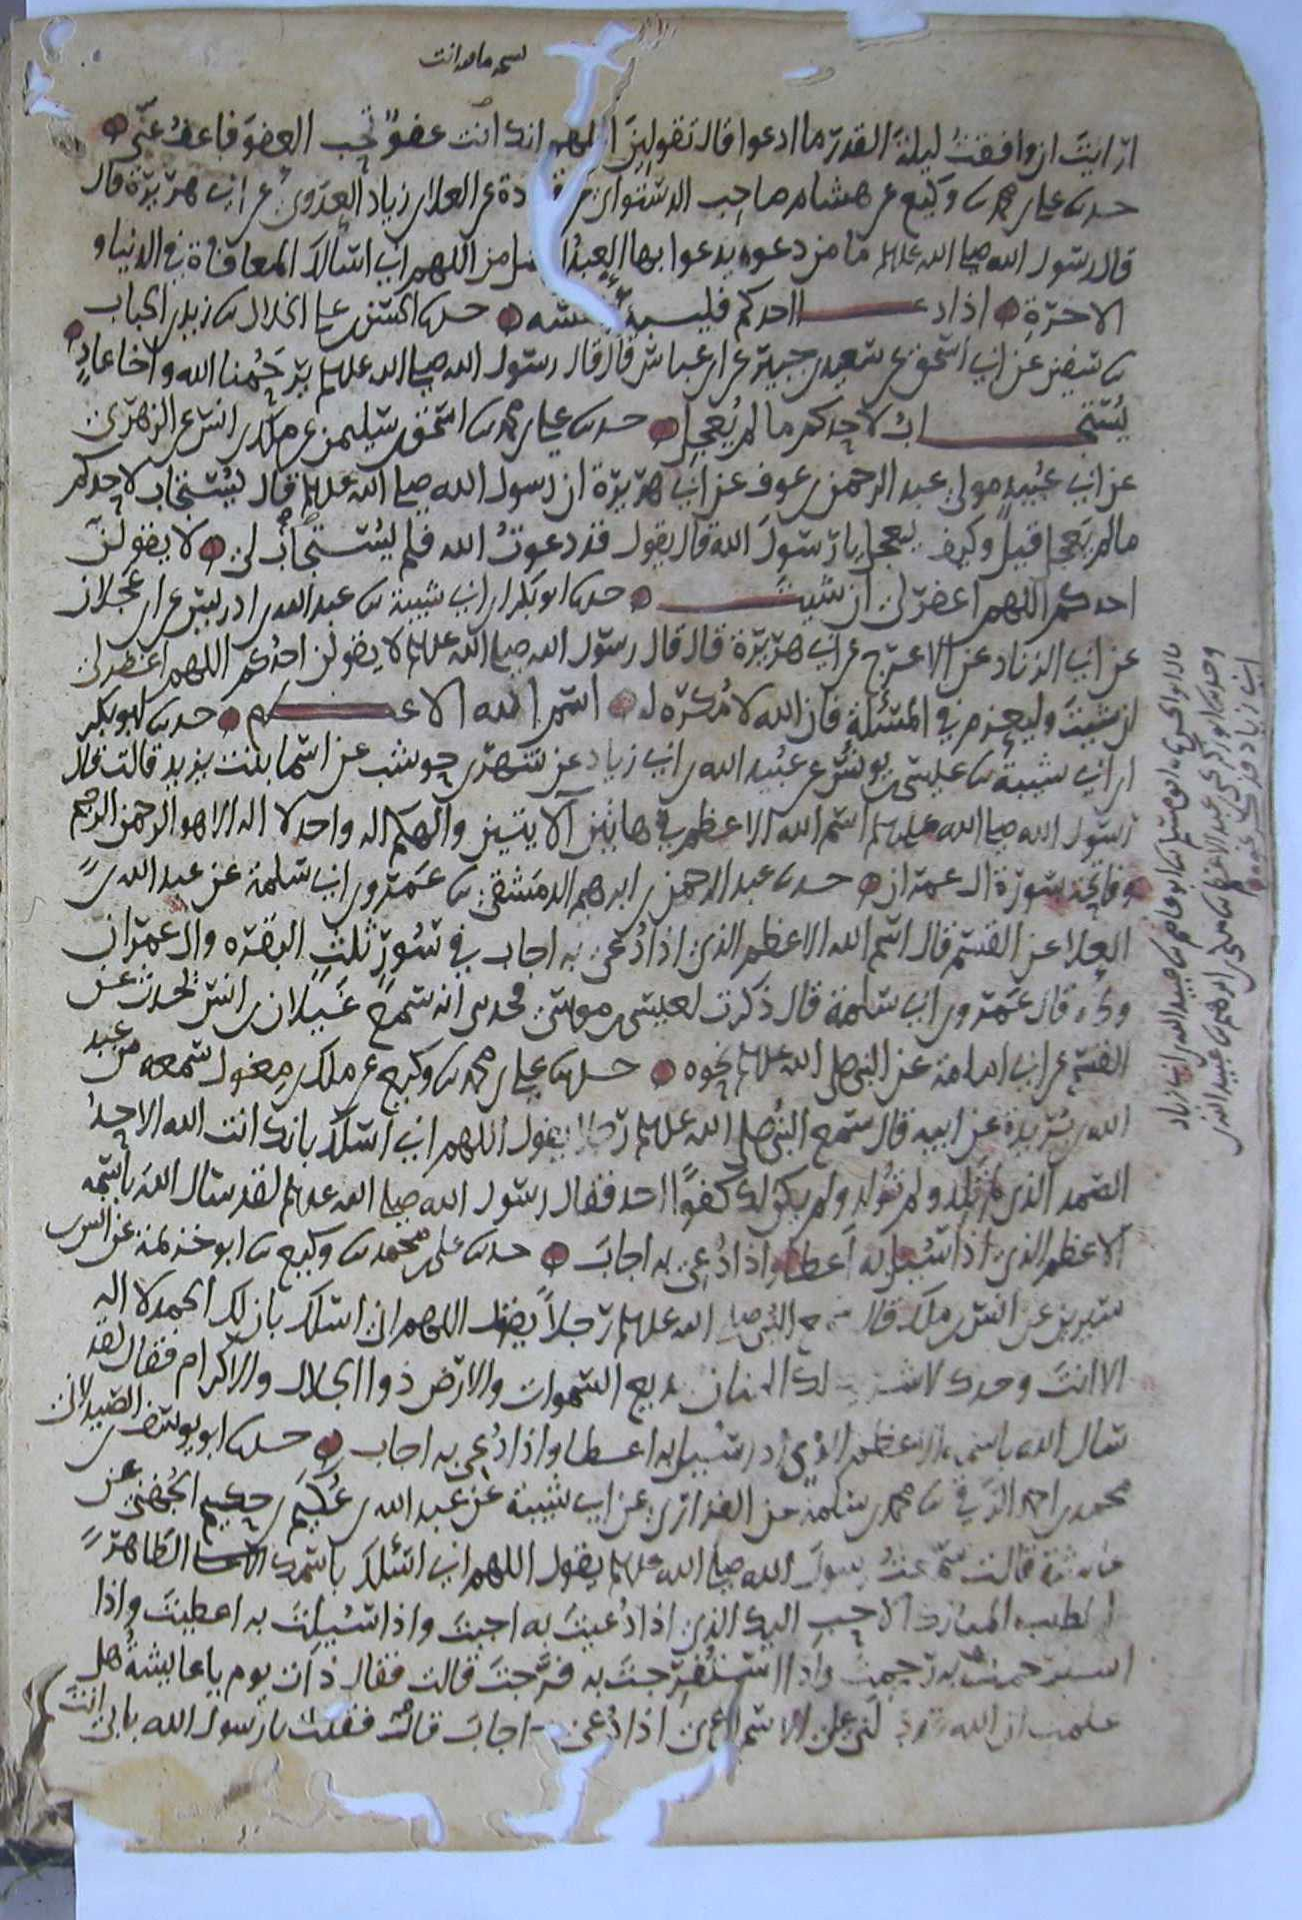 ارايت ان وافقت ليلة القدر ما ادعوا قال تقولين اللهم انك انت عفو تحب العفو فاعف عني
حدثنا علي بن محمد ثنا وكيع عن هشام صاحب الدستوائي عن قتادة عن العلاء بن زياد العدوي عن ابي هريرة قال
قال رسول الله صلى الله عليه وسلم ما من دعوة يدعوا بها العبد افضل من اللهم اني اسالك المعافاة في الدنيا و
الاخرة اذا دعا احدكم فليبدأ بنفسه حدثنا الحسن بن علي الخلال ثنا زيد بن الحباب
ثنا سفين عن ابي اسحق عن سعيد بن جبير عن ابن عباس قال قال رسول الله صلى الله عليه وسلم يرحمنا الله واخا عاد
يستجاب لاحدكم ما لم يعجل حدثنا علي بن محمد ثنا اسحق بن سليمن عن ملك بن انس عن الزهري
عن ابي عبيد مولى عبد الرحمن بن عوف عن ابي هريرة ان رسول الله صلى الله عليه وسلم قال يستجاب لاحدكم
مالم يعجل قيل وكيف يعجل يا رسول الله قال يقول قد دعوت الله فلم يستجاب لي لا يقولن
احدكم اللهم اغفر لي ان شيت حدثنا ابو بكر بن ابي شيبة ثنا عبد الله بن ادريس عن ابن عجلان
عن ابي الزناد عن الاعرج عن ابي هريرة قال قال رسول الله صلى الله عليه وسلم لا يقولن احدكم اللهم اغفر لي
ان شيت وليعزم في المسئلة فان الله لا مكره له اسم الله الاعظم حدثنا ابو بكر
ابن ابي شيبة ثنا عيسى بن يونس عن عبيد الله بن ابي زياد عن شهر بن حوشب عن اسما بنت يزيد قالت قال
رسول الله صلى الله عليه وسلم اسم الله الاعظم في هاتين الايتين والهكم اله واحد لا اله الا هو الرحمن الرحيم
وفاتحة سورة ال عمران حدثنا عبد الرحمن بن ابرهيم الدمشقي ثنا عمرو بن ابي سلمة عن عبد الله بن
العلا عن القسم قال اسم الله الاعظم الذي اذا دعي به اجاب في سور ثلث البقره وال عمران
وطه قال عمرو بن ابي سلمة قال ذكرت لعيسى بن موسى فحدثني انه سمع غيلان بن انس يحدث عن
القسم عن ابي امامة عن النبي صلى الله عليه وسلم نحوه حدثنا علي بن محمد ثنا وكيع عن ملك بن مغول سمعه من عبد
الله بن بريدة عن ابيه قال سمع النبي صلى الله عليه وسلم رجلا يقول اللهم اني اسئلك بانك انت الله الاحد
الصمد الذي لم تلد ولم تولد ولم يكن لك كفوا احد فقال رسول الله صلى الله عليه وسلم لقد سال الله باسمه
الاعظم الذي اذا سئل به اعطا واذا دعي به اجاب حدثنا علي بن محمد ثنا وكيع ثنا ابو خزيمة عن انس بن
سيرين عن انس بن ملك قال سمع النبي صلى الله عليه وسلم رجلا يقول اللهم اني اسئلك بان لك الحمد لا اله
الا انت وحدك لا شريك لك المنان بديع السموات والارض ذوا الجلال والاكرام فقال لقد
سال الله باسمه الاعظم الذي اذا سئل به اعطا واذا دعي به اجاب حدثنا ابو يوسف الصيدلاني
محمد بن احمد الرقي ثنا محمد بن سلمة عن الفزاري عن ابي شيبة عن عبد الله بن عكيم بن حكيم الجهني عن
عايشة قالت سمعت رسول الله صلى الله عليه وسلم يقول اللهم اني اسئلك باسمك الطاهر
الطيب المبارك الاحب اليك الذي اذا دعيت به اجبت واذا سئلت به اعطيت واذا
استرحمت به رحمت واذا استفرجت به فرجت قالت فقال ذات يوم يا عايشة هل
علمت ان الله قد دلني على الاسم الذي اذا دعي به اجاب قالت فقلت يا رسول الله بابي انت
وحدثنا ابو زكريا عبد الاعلى ثنا مكي بن ابرهيم ثنا عبيد الله بن
ابي زياد فذكر نحوه